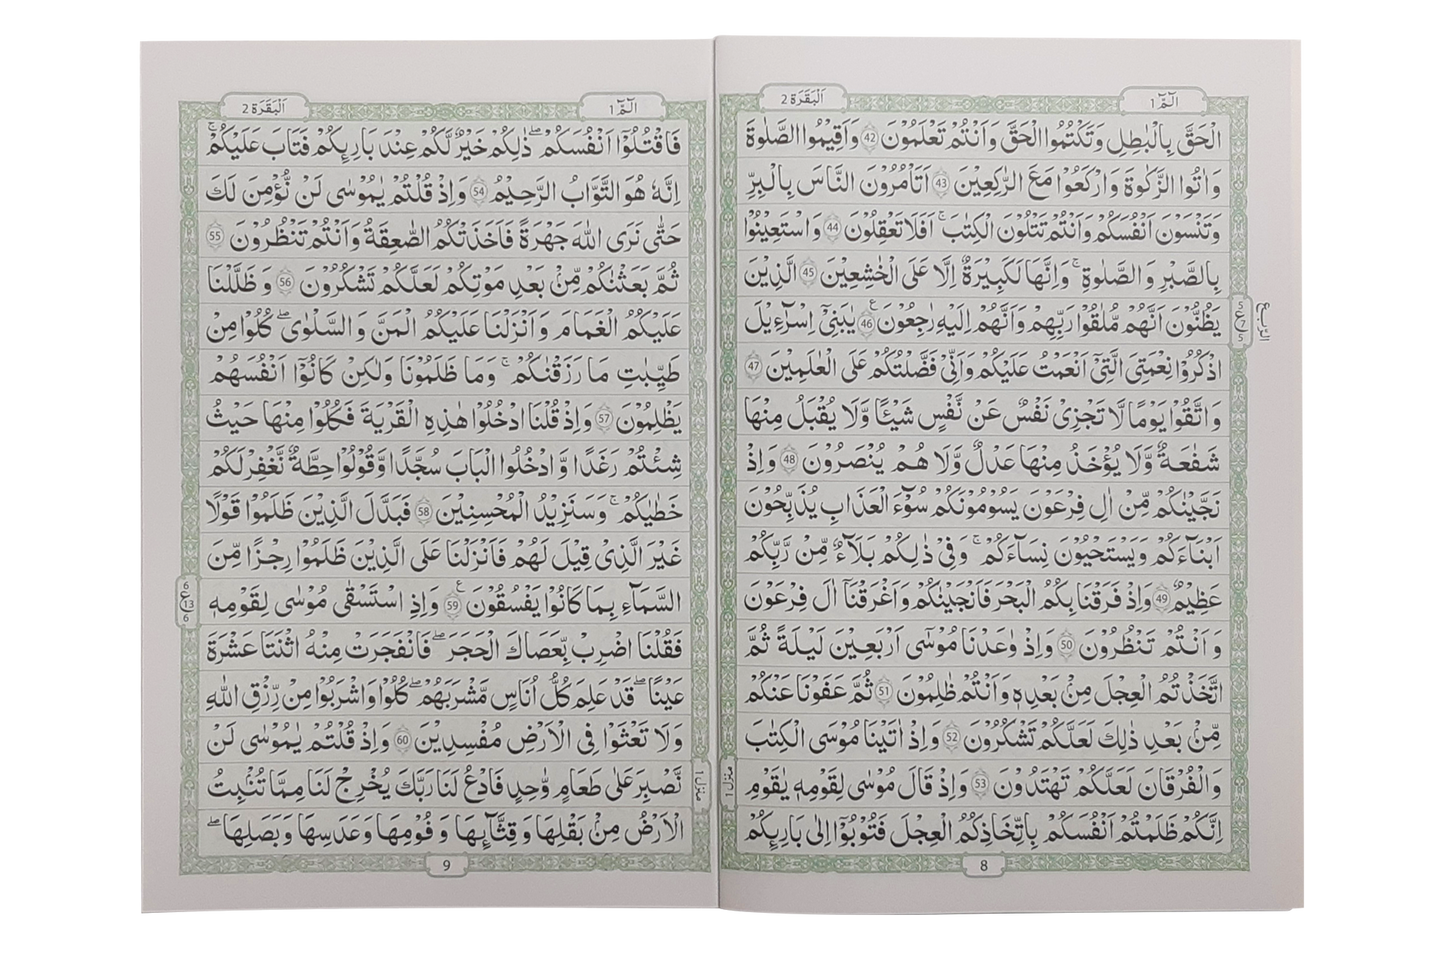 الٓمّٓ 1
اَلْبَقَرَة 2
الْحَقَّ بِالْبٰطِلِ وَتَكْتُمُوا الْحَقَّ وَاَنْتُمْ تَعْلَمُوْنَ 42 وَاَقِيْمُوا الصَّلٰوةَ
وَاٰتُوا الزَّكٰوةَ وَارْكَعُوْا مَعَ الرّٰكِعِيْنَ 43 اَتَاْمُرُوْنَ النَّاسَ بِالْبِرِّ
وَتَنْسَوْنَ اَنْفُسَكُمْ وَاَنْتُمْ تَتْلُوْنَ الْكِتٰبَ ۚ اَفَلَا تَعْقِلُوْنَ 44 وَاسْتَعِيْنُوْا
بِالصَّبْرِ وَالصَّلٰوةِ ۚ وَاِنَّهَا لَكَبِيْرَةٌ اِلَّا عَلَى الْخٰشِعِيْنَ 45 الَّذِيْنَ
يَظُنُّوْنَ اَنَّهُمْ مُّلٰقُوْا رَبِّهِمْ وَاَنَّهُمْ اِلَيْهِ رٰجِعُوْنَ ع 46 يٰبَنِيْٓ اِسْرَآءِيْلَ
اذْكُرُوْا نِعْمَتِيَ الَّتِيْٓ اَنْعَمْتُ عَلَيْكُمْ وَاَنِّيْ فَضَّلْتُكُمْ عَلَى الْعٰلَمِيْنَ 47
وَاتَّقُوْا يَوْمًا لَّا تَجْزِيْ نَفْسٌ عَنْ نَّفْسٍ شَيْـًٔا وَّلَا يُقْبَلُ مِنْهَا
شَفٰعَةٌ وَّلَا يُؤْخَذُ مِنْهَا عَدْلٌ وَّلَا هُمْ يُنْصَرُوْنَ 48 وَاِذْ
نَجَّيْنٰكُمْ مِّنْ اٰلِ فِرْعَوْنَ يَسُوْمُوْنَكُمْ سُوْٓءَ الْعَذَابِ يُذَبِّحُوْنَ
اَبْنَآءَكُمْ وَيَسْتَحْيُوْنَ نِسَآءَكُمْ ۚ وَفِيْ ذٰلِكُمْ بَلَآءٌ مِّنْ رَّبِّكُمْ
عَظِيْمٌ 49 وَاِذْ فَرَقْنَا بِكُمُ الْبَحْرَ فَاَنْجَيْنٰكُمْ وَاَغْرَقْنَآ اٰلَ فِرْعَوْنَ
وَاَنْتُمْ تَنْظُرُوْنَ 50 وَاِذْ وٰعَدْنَا مُوْسٰٓى اَرْبَعِيْنَ لَيْلَةً ثُمَّ
اتَّخَذْتُمُ الْعِجْلَ مِنْۢ بَعْدِهٖ وَاَنْتُمْ ظٰلِمُوْنَ 51 ثُمَّ عَفَوْنَا عَنْكُمْ
مِّنْۢ بَعْدِ ذٰلِكَ لَعَلَّكُمْ تَشْكُرُوْنَ 52 وَاِذْ اٰتَيْنَا مُوْسَى الْكِتٰبَ
وَالْفُرْقَانَ لَعَلَّكُمْ تَهْتَدُوْنَ 53 وَاِذْ قَالَ مُوْسٰى لِقَوْمِهٖ يٰقَوْمِ
اِنَّكُمْ ظَلَمْتُمْ اَنْفُسَكُمْ بِاتِّخَاذِكُمُ الْعِجْلَ فَتُوْبُوْٓا اِلٰى بَارِئِكُمْ
الرُّبْع
5
ع 7
5
منزل 1
8
الٓمّٓ 1
اَلْبَقَرَة 2
فَاقْتُلُوْٓا اَنْفُسَكُمْ ۖ ذٰلِكُمْ خَيْرٌ لَّكُمْ عِنْدَ بَارِئِكُمْ فَتَابَ عَلَيْكُمْ ۚ
اِنَّهٗ هُوَ التَّوَّابُ الرَّحِيْمُ 54 وَاِذْ قُلْتُمْ يٰمُوْسٰى لَنْ نُّؤْمِنَ لَكَ
حَتّٰى نَرَى اللّٰهَ جَهْرَةً فَاَخَذَتْكُمُ الصّٰعِقَةُ وَاَنْتُمْ تَنْظُرُوْنَ 55
ثُمَّ بَعَثْنٰكُمْ مِّنْۢ بَعْدِ مَوْتِكُمْ لَعَلَّكُمْ تَشْكُرُوْنَ 56 وَظَلَّلْنَا
عَلَيْكُمُ الْغَمَامَ وَاَنْزَلْنَا عَلَيْكُمُ الْمَنَّ وَالسَّلْوٰى ۖ كُلُوْا مِنْ
طَيِّبٰتِ مَا رَزَقْنٰكُمْ ۚ وَمَا ظَلَمُوْنَا وَلٰكِنْ كَانُوْٓا اَنْفُسَهُمْ
يَظْلِمُوْنَ 57 وَاِذْ قُلْنَا ادْخُلُوْا هٰذِهِ الْقَرْيَةَ فَكُلُوْا مِنْهَا حَيْثُ
شِئْتُمْ رَغَدًا وَّادْخُلُوا الْبَابَ سُجَّدًا وَّقُوْلُوْا حِطَّةٌ نَّغْفِرْ لَكُمْ
خَطٰيٰكُمْ ۚ وَسَنَزِيْدُ الْمُحْسِنِيْنَ 58 فَبَدَّلَ الَّذِيْنَ ظَلَمُوْا قَوْلًا
غَيْرَ الَّذِيْ قِيْلَ لَهُمْ فَاَنْزَلْنَا عَلَى الَّذِيْنَ ظَلَمُوْا رِجْزًا مِّنَ
السَّمَآءِ بِمَا كَانُوْا يَفْسُقُوْنَ ع 59 وَاِذِ اسْتَسْقٰى مُوْسٰى لِقَوْمِهٖ
فَقُلْنَا اضْرِبْ بِّعَصَاكَ الْحَجَرَ ۖ فَانْفَجَرَتْ مِنْهُ اثْنَتَا عَشْرَةَ
عَيْنًا ۖ قَدْ عَلِمَ كُلُّ اُنَاسٍ مَّشْرَبَهُمْ ۖ كُلُوْا وَاشْرَبُوْا مِنْ رِّزْقِ اللّٰهِ
وَلَا تَعْثَوْا فِى الْاَرْضِ مُفْسِدِيْنَ 60 وَاِذْ قُلْتُمْ يٰمُوْسٰى لَنْ
نَّصْبِرَ عَلٰى طَعَامٍ وَّاحِدٍ فَادْعُ لَنَا رَبَّكَ يُخْرِجْ لَنَا مِمَّا تُنْۢبِتُ
الْاَرْضُ مِنْۢ بَقْلِهَا وَقِثَّآئِهَا وَفُوْمِهَا وَعَدَسِهَا وَبَصَلِهَا ۖ
6
ع 13
6
منزل 1
9